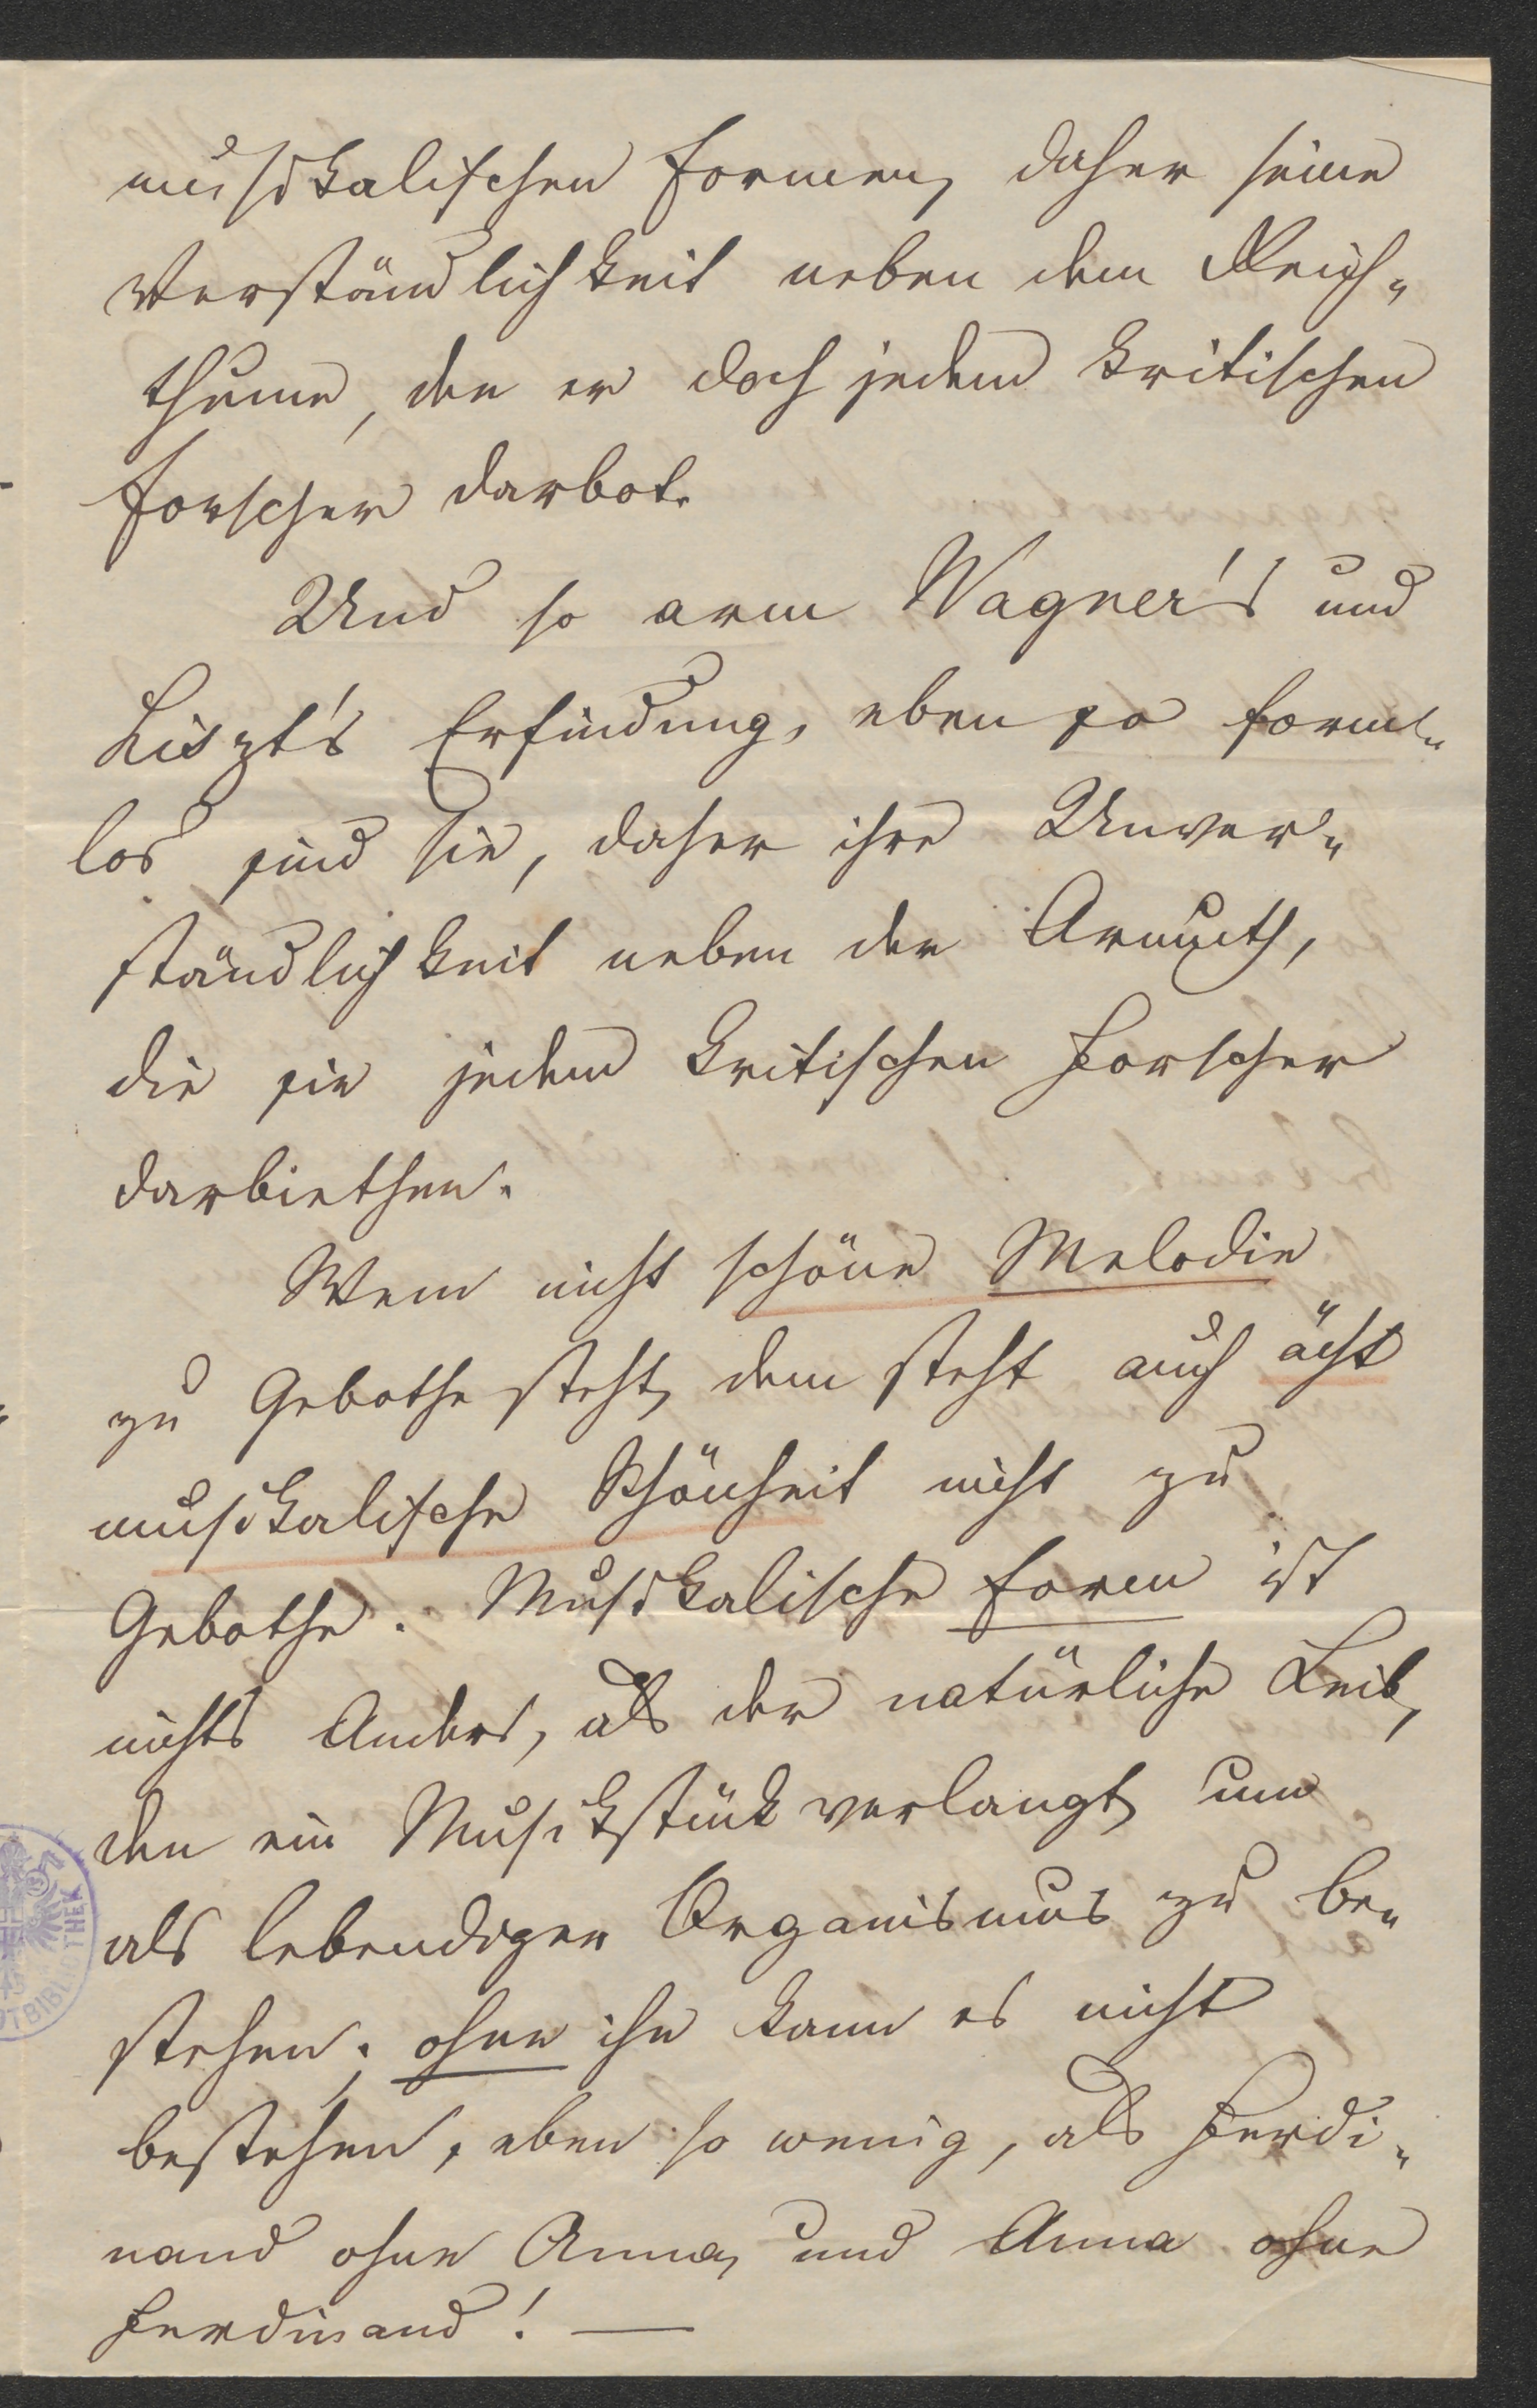 musikalischen Formen, daher seine
Verständlichkeit neben dem Reich„
thume, den er doch jedem kritischen
Forscher darbot.
Und so arm Wagner's und
Liszt's Erfindung, eben so form„
los sind sie, daher ihre Unver„
ständlichkeit neben der Armuth,
die sie jedem kritischen Forscher
darbiethen.
Wem nicht schöne Melodie
zu Gebothe steht, dem steht auch ächt
musikalische Schönheit nicht zu
Gebothe. Musikalische Form ist
nichts Anders, als der natürliche Leib,
den ein Musikstück verlangt, um
als lebendiger Organismus zu be„
stehen; ohne ihn kann es nicht
bestehen, eben so wenig, als Ferdi„
nand ohne Anna, und Anna ohne
Ferdinand! —